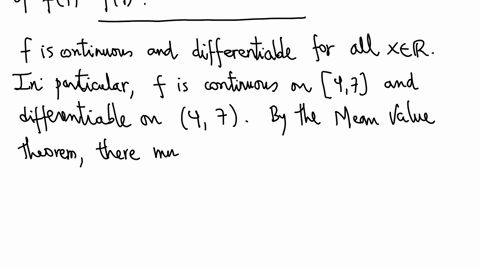 f is continuous and differentiable for all x∈ℝ.
In particular, f is continuous on [4,7] and
differentiable on (4, 7). By the Mean Value
theorem, there mu